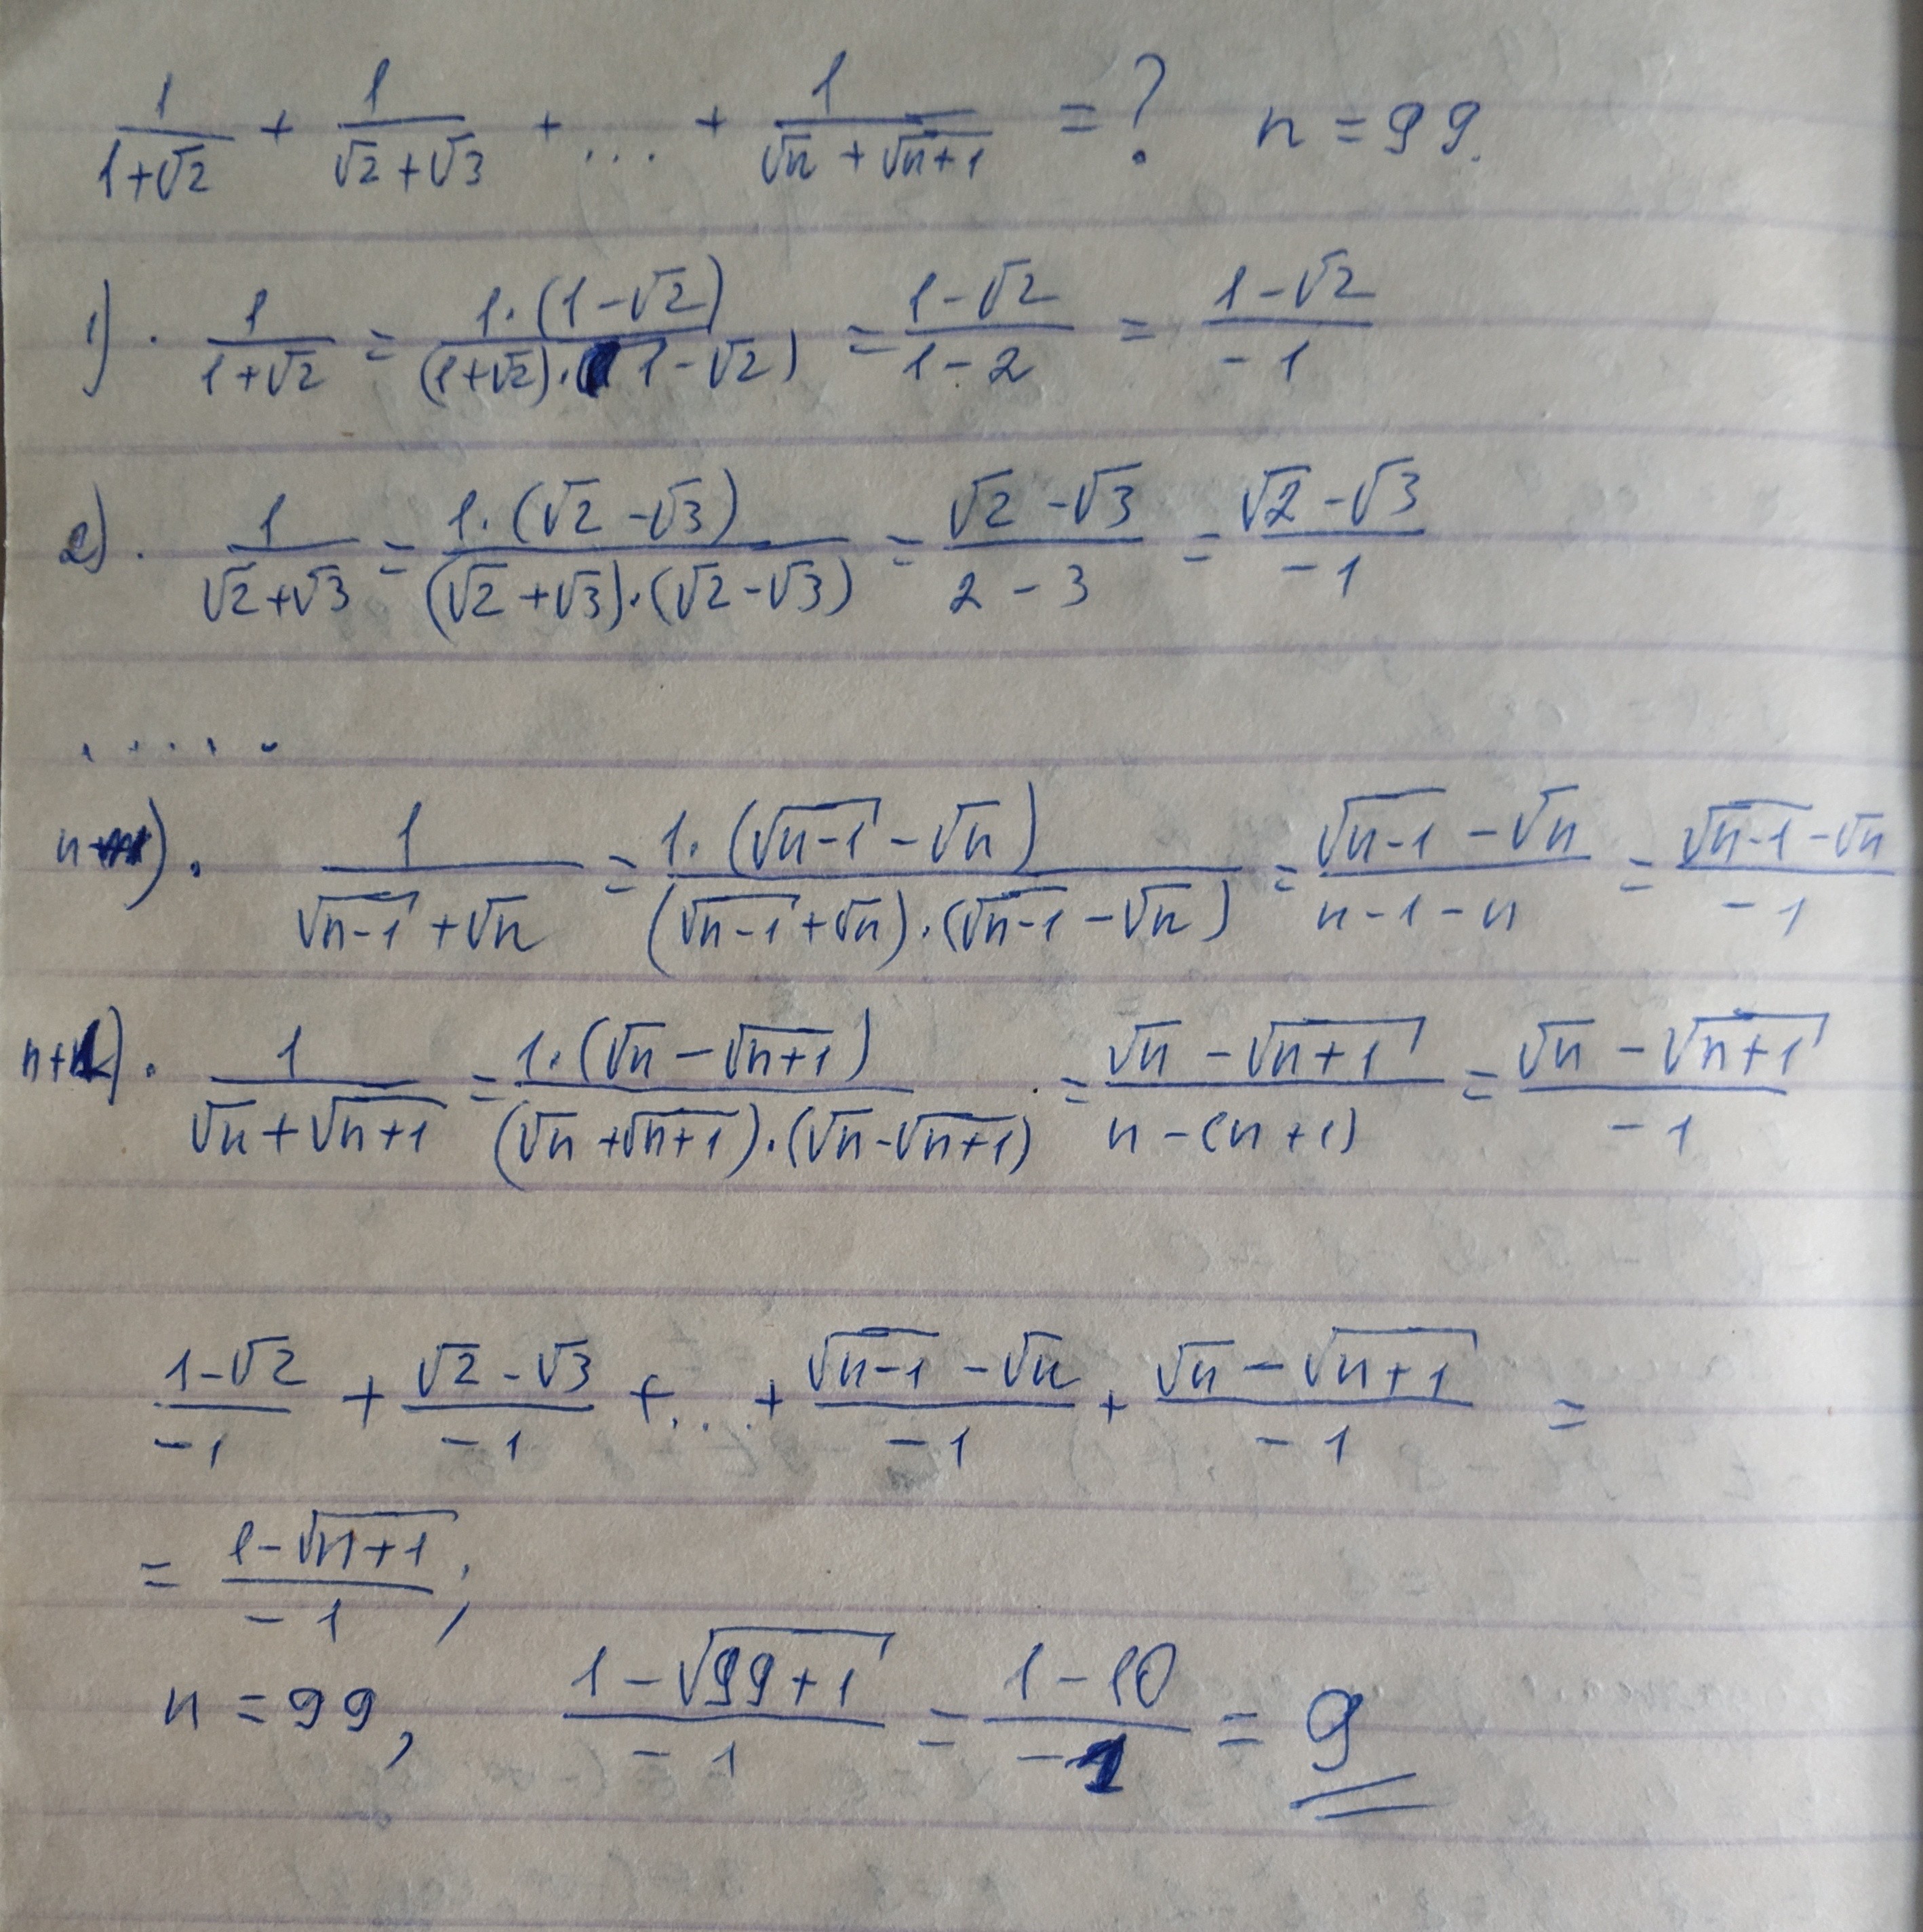 1/(1+√2) + 1/(√2+√3) + ... + 1/(√n + √(n+1)) = ? n = 99.
1) · 1/(1+√2) = 1·(1-√2)/((1+√2)·(1-√2)) = (1-√2)/(1-2) = (1-√2)/(-1)
2) · 1/(√2+√3) = 1·(√2-√3)/((√2+√3)·(√2-√3)) = (√2-√3)/(2-3) = (√2-√3)/(-1)
.....
n) · 1/(√(n-1)+√n) = 1·(√(n-1)-√n)/((√(n-1)+√n)·(√(n-1)-√n)) = (√(n-1)-√n)/(n-1-n) = (√(n-1)-√n)/(-1)
n+1) · 1/(√n+√(n+1)) = 1·(√n-√(n+1))/((√n+√(n+1))·(√n-√(n+1))) = (√n-√(n+1))/(n-(n+1)) = (√n-√(n+1))/(-1)
(1-√2)/(-1) + (√2-√3)/(-1) + ... + (√(n-1)-√n)/(-1) + (√n-√(n+1))/(-1) =
= (1-√(n+1))/(-1);
n = 99, (1-√(99+1))/(-1) = (1-10)/(-1) = 9